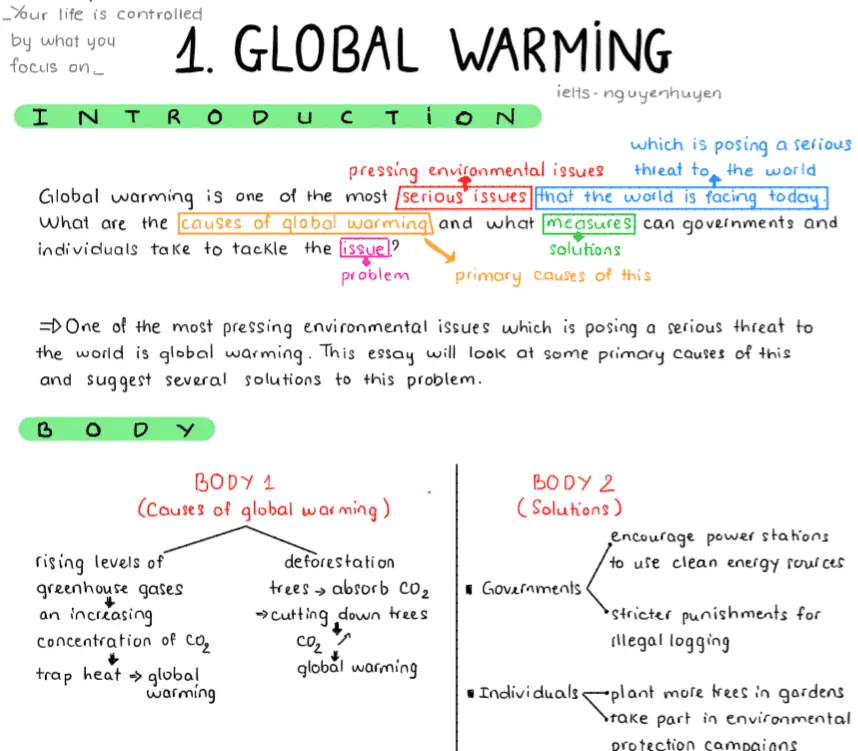 _Your life is controlled
by what you
focus on_
1. GLOBAL WARMING
ielts-nguyenhuyen
INTRODUCTION
which is posing a serious
pressing environmental issues threat to the world
Global warming is one of the most serious issues that the world is facing today.
What are the causes of global warming and what measures can governments and
individuals take to tackle the issue?
solutions
problem primary causes of this
=> One of the most pressing environmental issues which is posing a serious threat to
the world is global warming. This essay will look at some primary causes of this
and suggest several solutions to this problem.
BODY
BODY 1
(Causes of global warming)
rising levels of
greenhouse gases
↓
an increasing
concentration of CO₂
↓
trap heat => global
warming
deforestation
trees → absorb CO₂
=> cutting down trees
↓
CO₂ ↗
↓
global warming
BODY 2
(Solutions)
Governments
encourage power stations
to use clean energy sources
stricter punishments for
illegal logging
Individuals
plant more trees in gardens
take part in environmental
protection campaigns